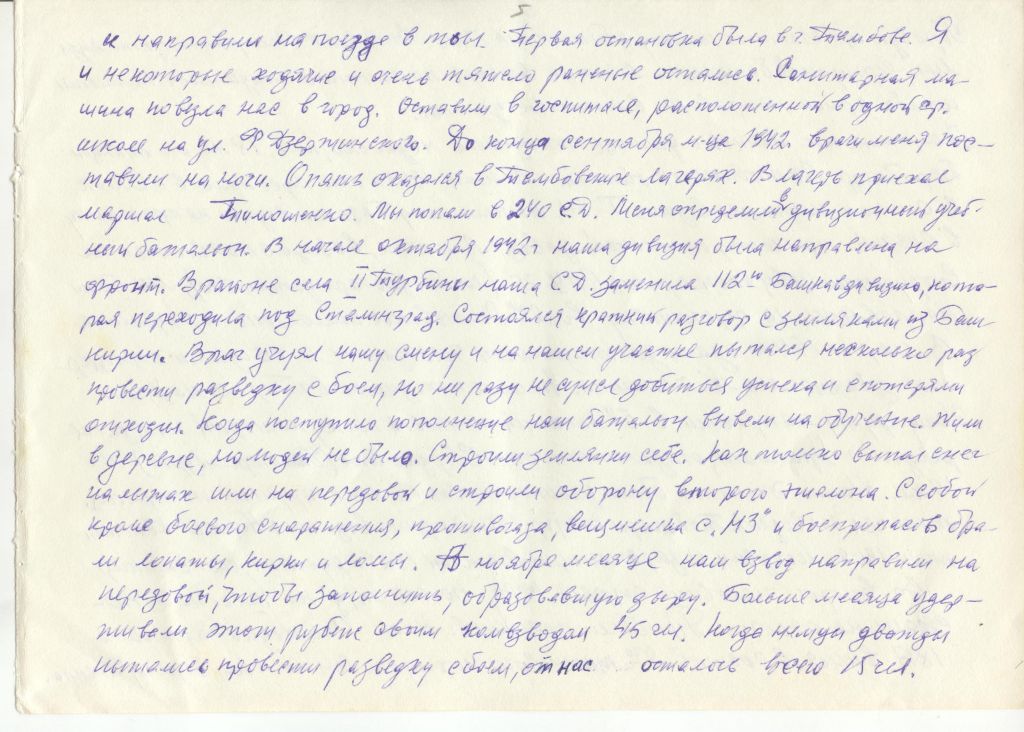 5
и направили на поезде в тыл. Первая остановка была в г. Тамбове. Я
и некоторые ходячие и очень тяжело раненые остались. Санитарная ма-
шина повезла нас в город. Оставили в госпитале, расположенной в одной ср.
школе на ул. Ф Дзержинского. До конца сентября м-ца 1942г. врачи меня пос-
тавили на ноги. Опять оказался в Тамбовских лагерях. В лагерь приехал
маршал Тимошенко. Мы попали в 240 С.Д. Меня определили в дивизионный учеб-
ный батальон. В начале октября 1942г наша дивизия была направлена на
фронт. В районе села II Турбины наша С.Д. заменила 112ю Башкавдивизию, кото-
рая переходила под Сталинград. Состоялся краткий разговор с земляками из Баш-
кирии. Враг учуял нашу смену и на нашем участке пытался несколько раз
провести разведку с боем, но ни разу не сумел добиться успеха и с потерями
отходил. Когда поступило пополнение наш батальон вывели на обучение. Жили
в деревне, но людей не было. Строили землянки себе. Как только выпал снег
на лыжах шли на передовой и строили оборону второго эшелона. С собой
кроме боевого снаряжения, противогаза, вещмешка с „НЗ" и боеприпасов бра-
ли лопаты, кирки и ломы. В ноябре месяце наш взвод направили на
передовой, чтобы заполнить, образовавшую дыру. Больше месяца удер-
живали этот рубеж своим комвзводом 45 чел. Когда немцы дважды
пытались провести разведку с боем, от нас осталось всего 15 чел.